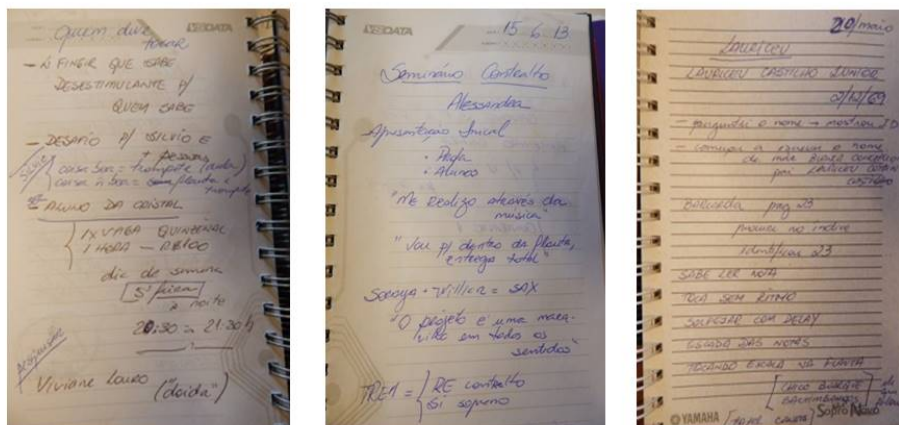 Quem diz
tocar
DATA
- É FINGIR QUE SABE
DESESTIMULANTE P/
QUEM SABE
- DESAFIO P/ SILVIO E
+ pessoas
coisa boa = trompete (nada)
coisa ñ boa = flauta e
trompete
ALUNO DA CRISTAL
1X VAGA QUINZENAL
1 HORA — R$100
dia de semana
5ª feira
à noite
20:30 às 21:30h
Viviane Louro
("doida")
DATA 15 6 13
Seminário Contralto
Alessandra
Apresentação Inicial
• Profa
• Alunos
"Me realizo através da
música"
"Vou p/ dentro da flauta,
entrega total"
Soraya + = SAX
"O projeto é uma mara-
vilha em todos os
sentidos"
TREM = RE contralto
Si soprano
29/maio
LAURICEU
LAURICEU CASTILHO JUNIOR
2/12/69
- perguntei o nome → mostrou ID
- começa a escrever o nome
da mãe
pai LAURICEU
CASTILHO
pag 23
procura no índice
identificou 23
SABE LER NOTA
TOCA SEM RITMO
SOLFEJAR COM DELAY
ESCADA DAS NOTAS
TOCANDO ESCALA NA FLAUTA
CHICO BUARQUE
YAMAHA
Sopro Novo